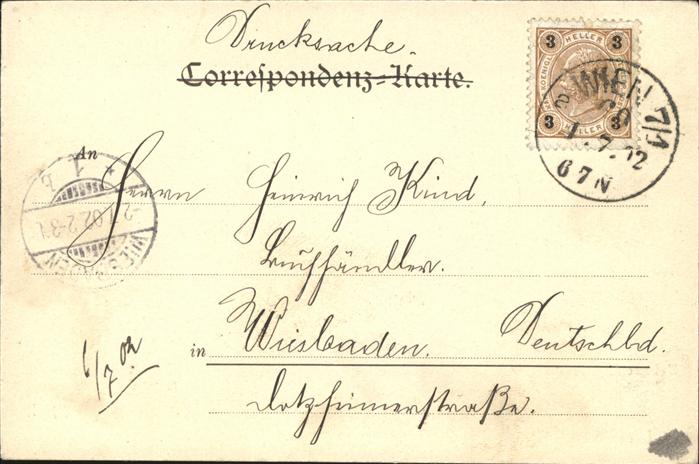 Drucksache.
Correspondenz-Karte.
3 HELLER 3
3 HELLER 3
WIEN 7/1
1.7.02
6 7 N
An
Herrn Heinrich Kind,
Buchhändler.
2.7.02.2-3
WIESBADEN
1
in Wiesbaden. Deutschld.
Dotzheimerstraße.
6/7 02